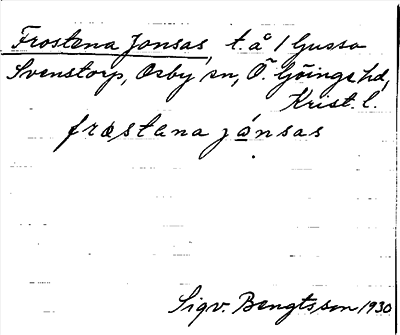 Frostena Jonsas, t. å 1 Gussa
Svenstorp, Osby sn, Ö. Göinge hd,
Krist. l.
fråstena jånsas
Sigv. Bengtsson 1930